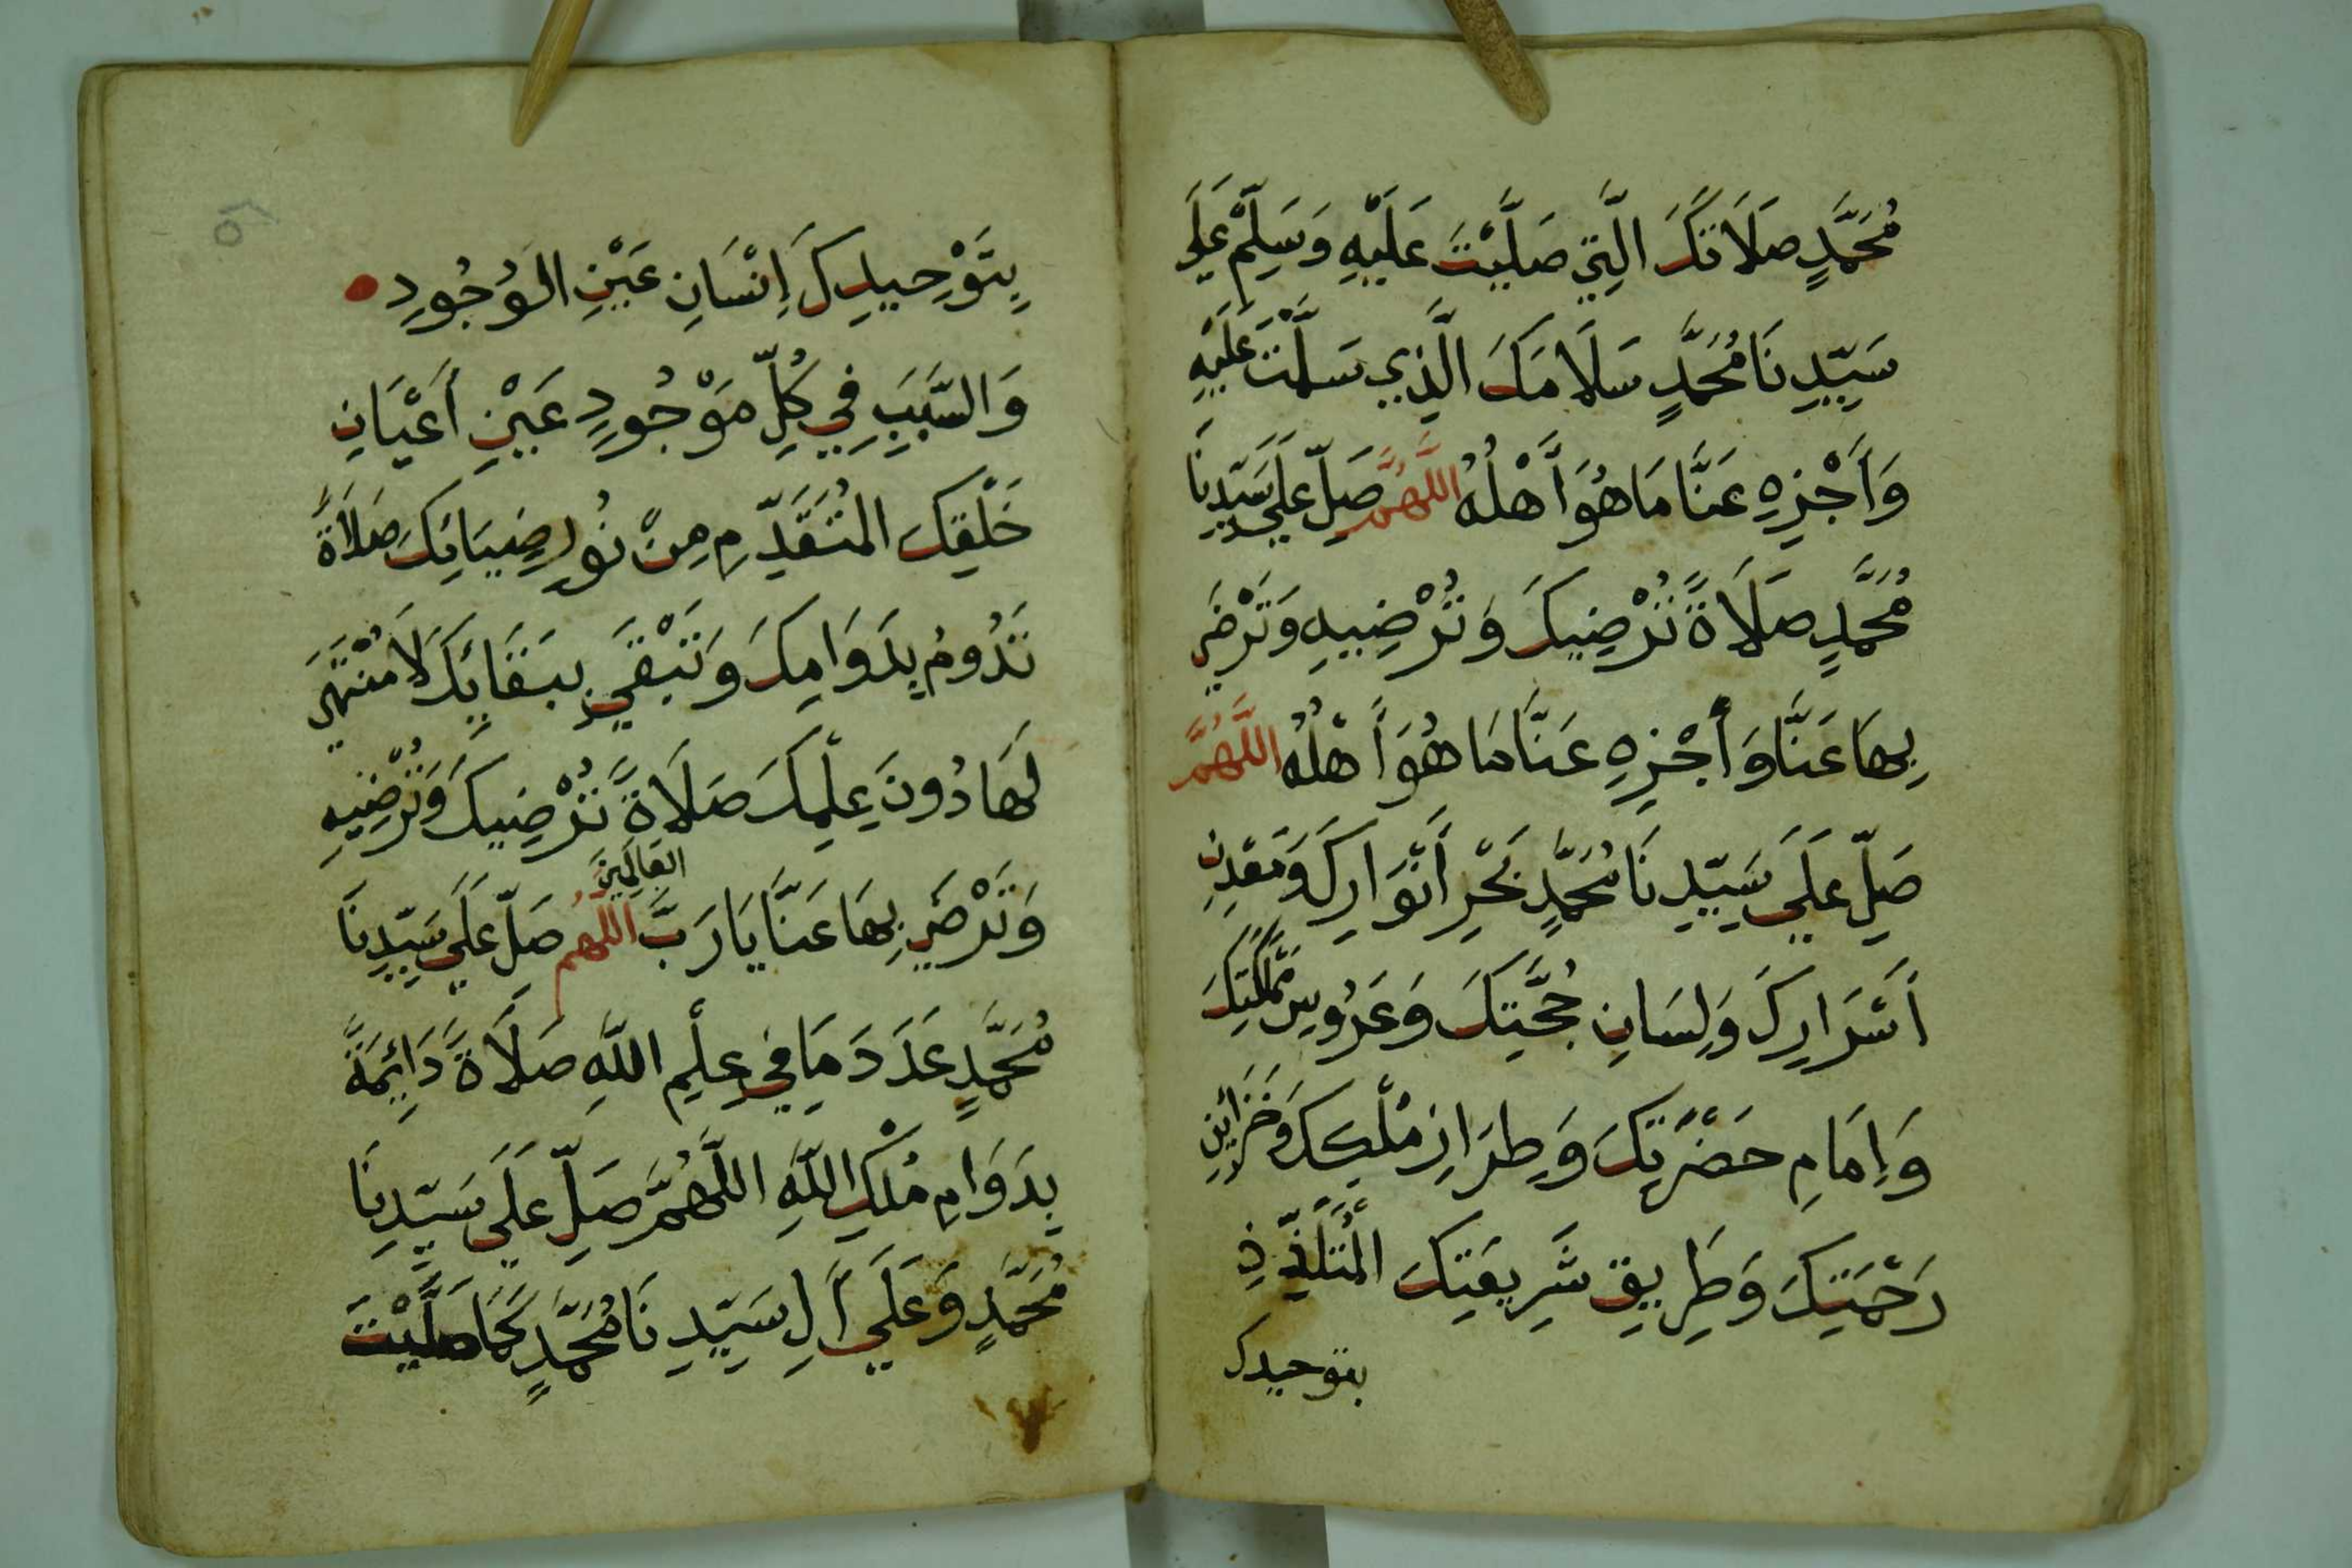 مُحَمَّدٍ صَلَاتَكَ الَّتِي صَلَّيْتَ عَلَيْهِ وَسَلِّمْ عَلَي
سَيِّدِنَا مُحَمَّدٍ سَلَامَكَ الَّذِي سَلَّمْتَ عَلَيْهِ
وَأَجْزِهِ عَنَّا مَا هُوَ أَهْلُهُ اللَّهُمَّ صَلِّ عَلَي سَيِّدِنَا
مُحَمَّدٍ صَلَاةً تُرْضِيكَ وَتُرْضِيهِ وَتَرْضَي
بِهَا عَنَّا وَأَجْزِهِ عَنَّا مَا هُوَ أَهْلُهُ اللَّهُمَّ
صَلِّ عَلَي سَيِّدِنَا مُحَمَّدٍ بَحْرِ أَنْوَارِكَ وَمَعْدِنِ
أَسْرَارِكَ وَلِسَانِ حُجَّتِكَ وَعَرُوسِ مَمْلَكَتِكَ
وَإِمَامِ حَضْرَتِكَ وَطِرَازِ مُلْكِكَ وَخَزَائِنِ
رَحْمَتِكَ وَطَرِيقِ شَرِيعَتِكَ الْمُتَلَذِّذِ
بتوحيدك
بِتَوْحِيدِكَ إِنْسَانِ عَيْنِ الْوُجُودِ
وَالسَّبَبِ فِي كُلِّ مَوْجُودٍ عَيْنِ أَعْيَانِ
خَلْقِكَ الْمُتَقَدِّمِ مِنْ نُورِ ضِيَائِكَ صَلَاةً
تَدُومُ بِدَوَامِكَ وَتَبْقَي بِبَقَائِكَ لَا مُنْتَهَي
لَهَا دُونَ عِلْمِكَ صَلَاةً تُرْضِيكَ وَتُرْضِيهِ
وَتَرْضَي بِهَا عَنَّا يَا رَبَّ الْعَالَمِينَ اللَّهُمَّ صَلِّ عَلَي سَيِّدِنَا
مُحَمَّدٍ عَدَدَ مَا فِي عِلْمِ اللَّهِ صَلَاةً دَائِمَةً
بِدَوَامِ مُلْكِ اللَّهِ اللَّهُمَّ صَلِّ عَلَي سَيِّدِنَا
مُحَمَّدٍ وَعَلَي أَلِ سَيِّدِنَا مُحَمَّدٍ كَمَا صَلَّيْتَ